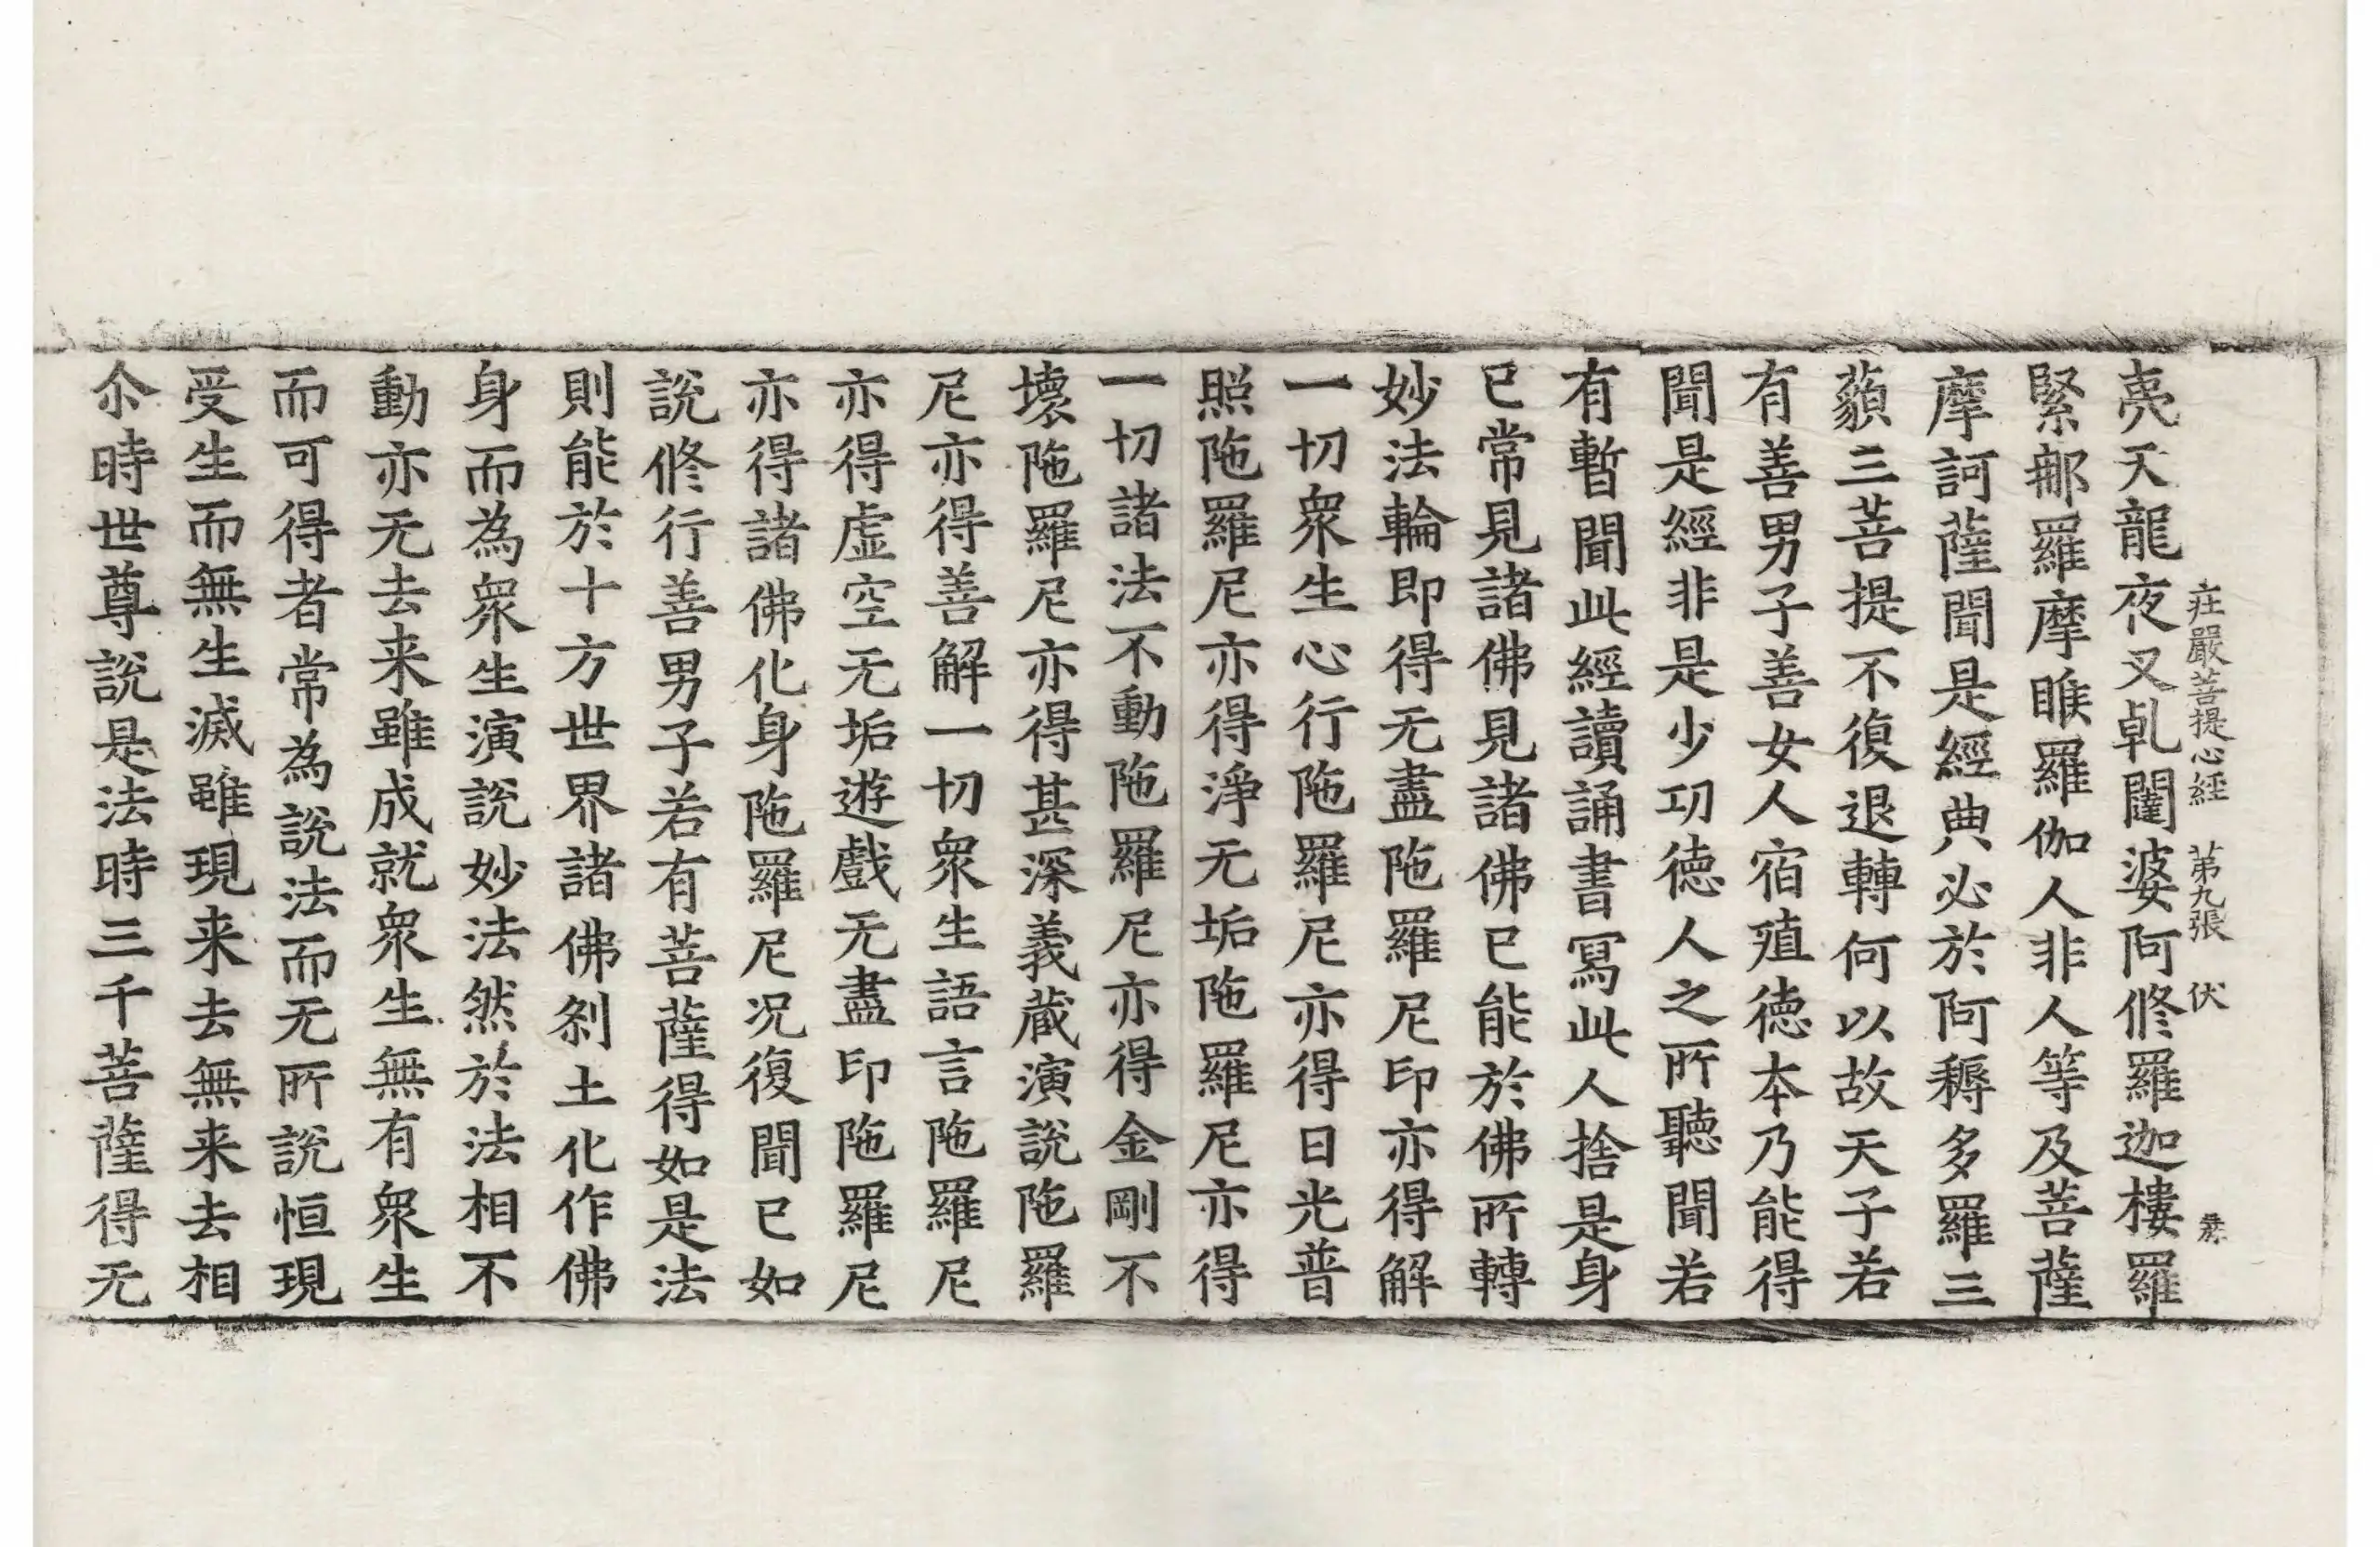 莊嚴菩提心經 第九張 伏
夷天龍夜叉乹闥婆阿修羅迦樓羅
緊那羅摩睺羅伽人非人等及菩薩
摩訶薩聞是經典必於阿耨多羅三
藐三菩提不復退轉何以故天子若
有善男子善女人宿殖德本乃能得
聞是經非是少㓛德人之所聽聞若
有暫聞此經讀誦書寫此人捨是身
已常見諸佛見諸佛已能於佛所轉
妙法輪即得无盡陁羅尼印亦得解
一切衆生心行陁羅尼亦得日光普
照陁羅尼亦得淨无垢陁羅尼亦得
一切諸法不動陁羅尼亦得金剛不
壞陁羅尼亦得甚深義蔵演說陁羅
尼亦得善解一切衆生語言陁羅尼
亦得虛空无垢遊戲无盡印陁羅尼
亦得諸佛化身陁羅尼况復聞已如
說修行善男子若有菩薩得如是法
則能於十方世界諸佛刹土化作佛
身而為衆生演說妙法然於法相不
動亦无去来雖成就衆生無有衆生
而可得者常為說法而无所說恒現
受生而無生滅雖現来去無来去相
尒時世尊說是法時三千菩薩得无